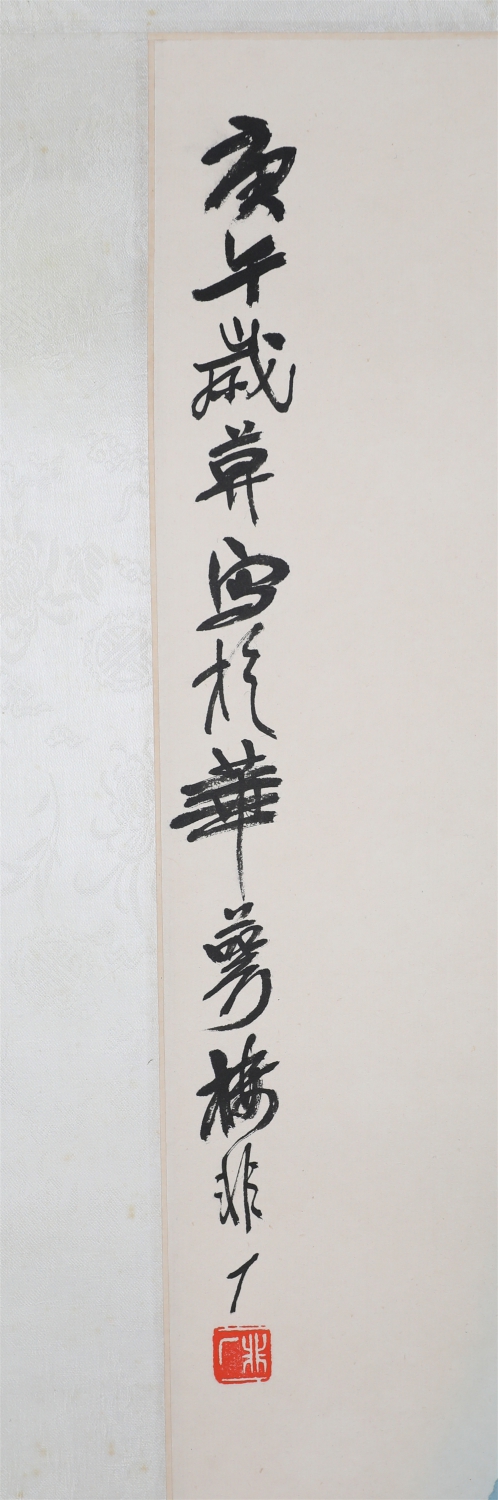 庚午歲草寫於華萼樓非厂
非厂